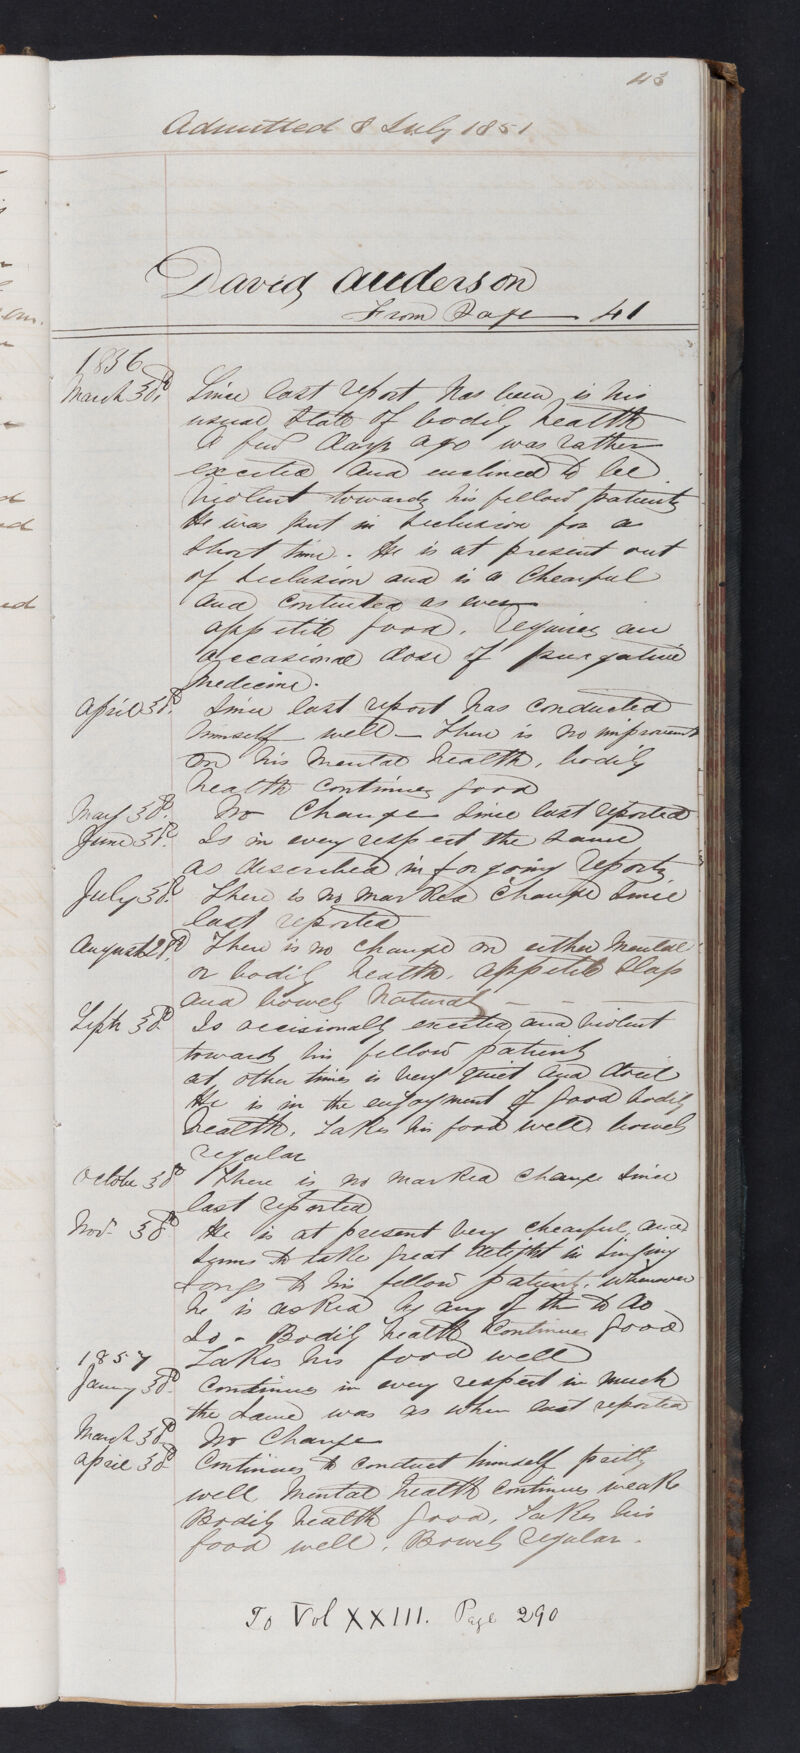 43
Admitted 8 July 1851
David Anderson
From Page 41
1856
March 30th Since last report has been is his
usual State of bodily health
A few days ago was rather
excited and enclined to be
violent towards his fellow patients
He was put in Seclusion for a
Short time. He is at present out
of Seclusion and is a Chearful
and contented as ever
appetite good. requires an
occasional dose of purgative
Medecine.
April 30th Since last report has conducted
himself well - There is no improvement
on his Mental health, bodily
health continues good
May 30th No Change Since last reported
June 30th Is in every respect the Same
as described in forgoing reports
July 30th There is no marked Change Since
last reported
August 29th There is no change on either Mental
or bodily health. appetite Slap
and bowels Natural
Septr 30th Is occisionally excited and violent
towards his fellow patients
at other times is very quiet and
He is in the enjoyment of good bodily
health. Takes his food well. bowels
regular
Octobe 30th There is no marked Change Since
last reported
Novr 30th He is at present very chearful and
Seems to take great delight in Singing
Songs to his fellow patients. Whenever
he is asked by any of the to do
So - Bodily health Continues good
Takes his food well
1857
Janry 30th Continues in every respect in much
the Same was as when last reported
March 30th No Change
April 30th Continues to conduct himself pritty
well Mental health continues weak
Bodily health good. Takes his
food well. Bowels regular.
To Vol XXIII. Page 290